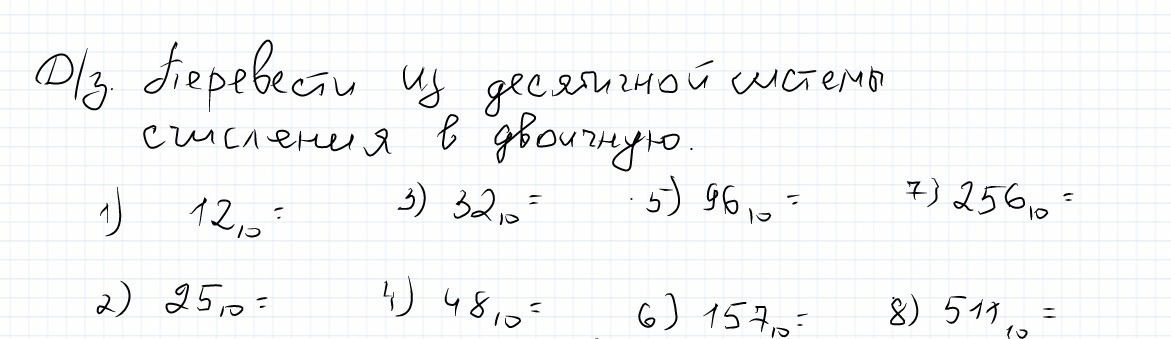 Д/з. Перевести из десятичной системы
счисления в двоичную.
1) 12₁₀ = 3) 32₁₀ = 5) 96₁₀ = 7) 256₁₀ =
2) 25₁₀ = 4) 48₁₀ = 6) 157₁₀ = 8) 511₁₀ =